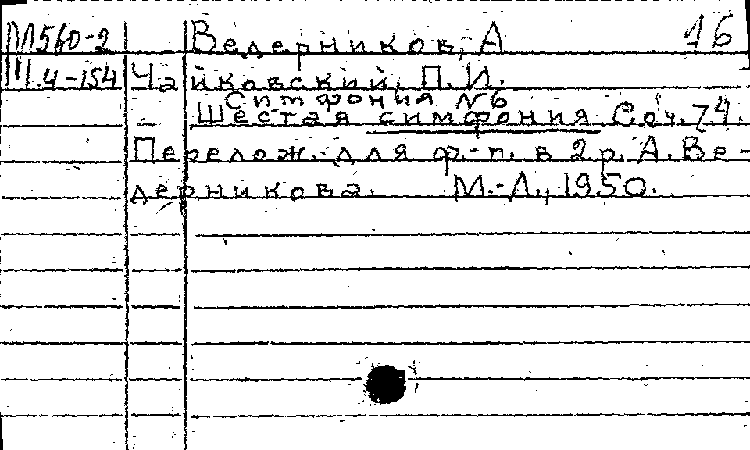 М560-2 Ведерников, А 16
III.4-154 Чайковский, П.И.
Симфония №6
Шестая симфония Соч. 74.
Перелож. для ф.-п. в 2 р. А. Ве-
дерникова. М.-Л., 1950.